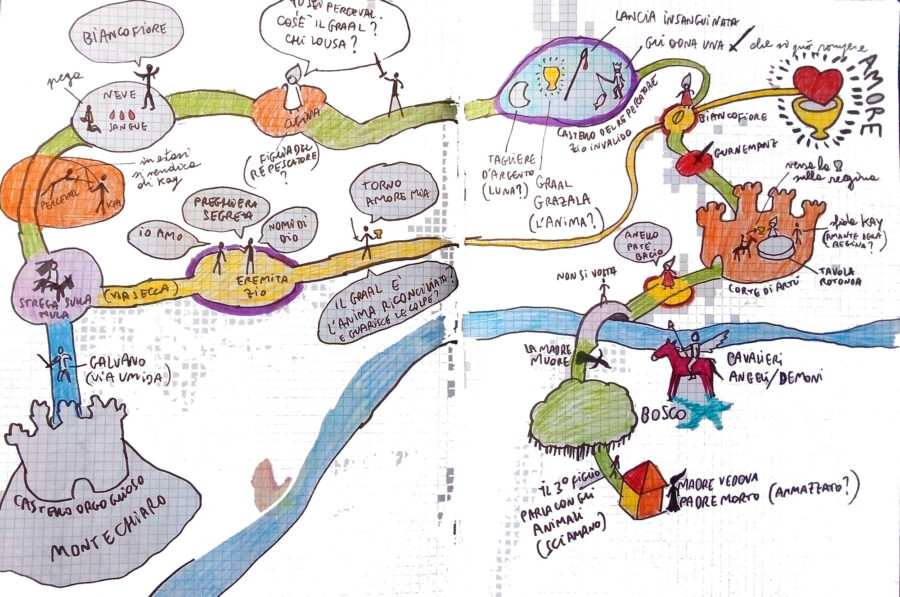 TU SEI PERCEVAL.
COS'È IL GRAAL?
CHI LO USA?
BIANCOFIORE
NEVE
SANGUE
CUGINA
(FIGLIA DEL
RE PESCATORE)
?
in estasi
si vendica
di Kay
PERCEVAL
KAY
PREGHIERA
SEGRETA
IO AMO
NOMI DI
DIO
TORNO
AMORE MIO
STREGA SULLA
MULA
(VIA SECCA)
EREMITA
ZIO
IL GRAAL È
L'ANIMA RICONCILIATA?
E GUARISCE LE COLPE?
GALVANO
(VIA UMIDA)
CASTELLO ORGOGLIOSO
MONTECHIARO
LANCIA INSANGUINATA
GLI DONA UNA
che si può rompere
CASTELLO DEL RE PESCATORE
ZIO INVALIDO
TAGLIERE
D'ARGENTO
(LUNA?)
GRAAL
GRAZALA
(L'ANIMA?)
BIANCOFIORE
AMORE
GURNEMANZ
versa la
sulla regina
sfida KAY
(AMANTE DELLA
REGINA?)
TAVOLA
ROTONDA
CORTE DI ARTÙ
ANELLO
PATÈ
BACIO
NON SI VOLTA
LA MADRE
MUORE
CAVALIERI
ANGELI/DEMONI
BOSCO
IL 3° FIGLIO
PARLA CON GLI
ANIMALI
(SCIAMANO)
MADRE VEDOVA
PADRE MORTO (AMMAZZATO?)